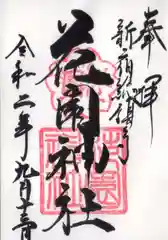 奉拝
新宿総鎮守
花園神社
令和二年九月十三日